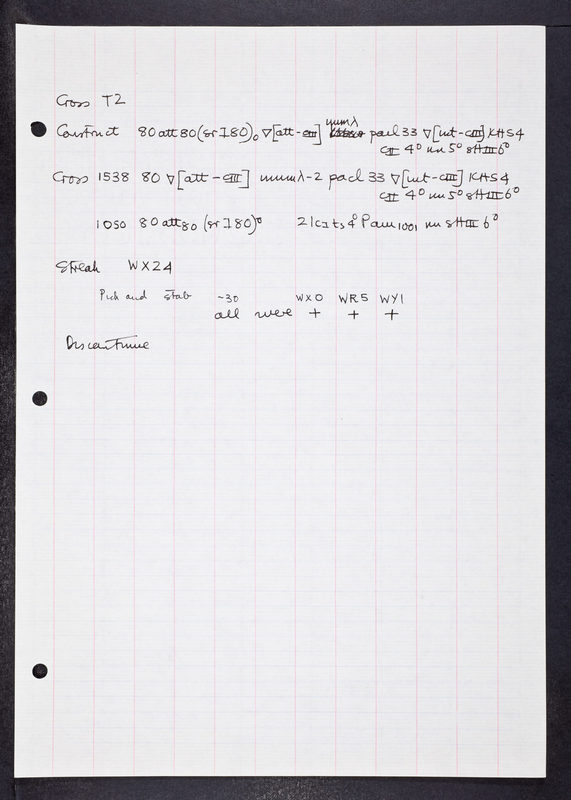 Cross T2
Construct 80 att80 (sr I80)₀ ∇[att-cIII] immλ pacl 33 ∇[int-cIII] KHS4
cII 4⁰ nn 5⁰ sHIII 6⁰
Cross 1538 80 ∇[att-cIII] immλ-2 pacl 33 ∇[int-cIII] KHS4
cII 4⁰ nn 5⁰ sHIII 6⁰
1050 80 att80 (sr I80)⁰ 21cIts4⁰ Pam1001 nn sHIII 6⁰
Streak WX24
Pick and stab ~30 WX0 WR5 WY1
all were + + +
Discontinue